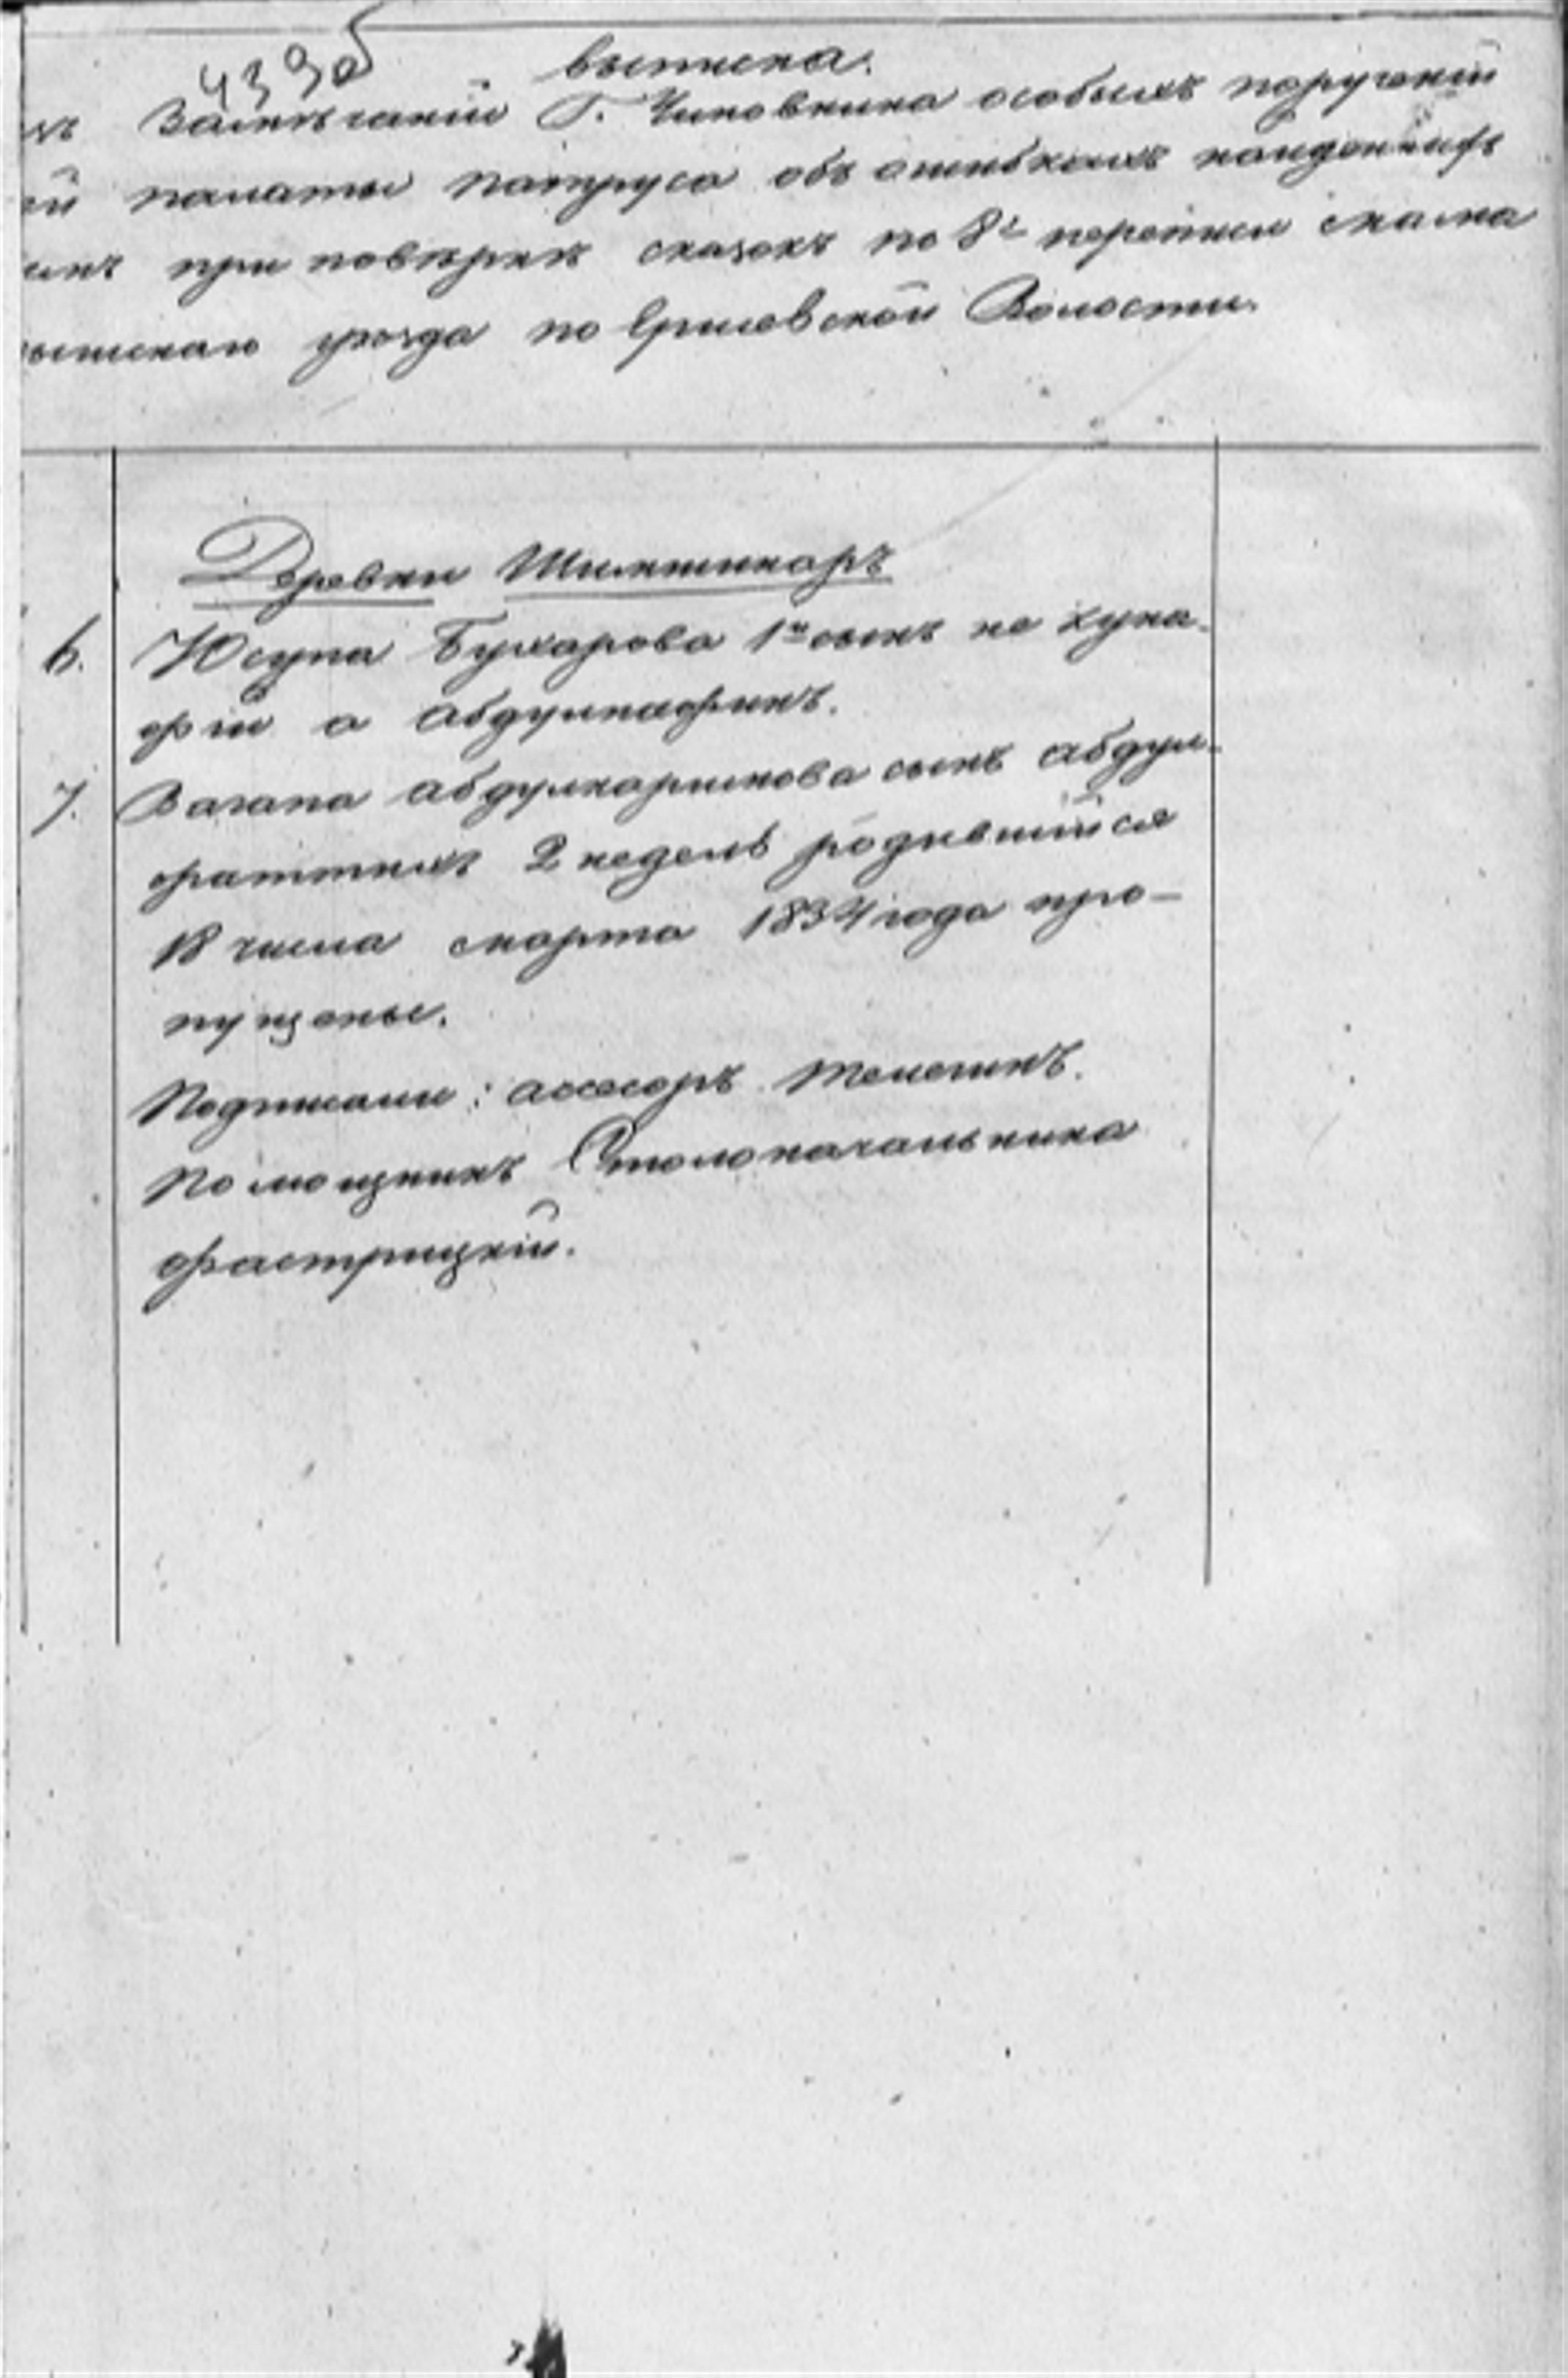 439об
выписка.
Замѣчаній Г. Чиновника особыхъ порученій
палаты Патруса объ ошибкахъ найденныхъ
при повѣркѣ сказокъ по 8й переписи
уѣзда по Ерисовской Волости.
Деревни
6. Юсупа Бухарова 1й сынъ не Хуна-
фій а Абдулнафикъ.
7. Вагапа Абдулкаримова сынъ Абдул-
фаттихъ 2 недель родившійся
18 числа марта 1834 года про-
пущены.
Подписали: ассесоръ Телегинъ.
Помощникъ Столоначальника
Фастрицкій.